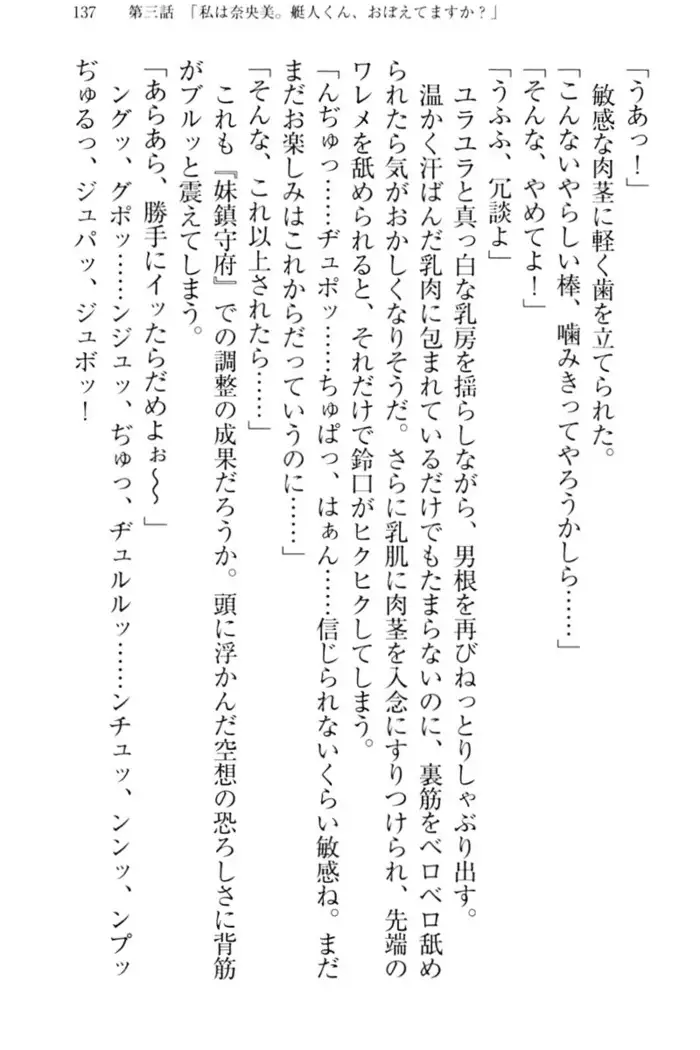 137　第三話　「私は奈央美。艇人くん、おぼえてますか？」
「うあっ！」
敏感な肉茎に軽く歯を立てられた。
「こんないやらしい棒、噛みきってやろうかしら……」
「そんな、やめてよ！」
「うふふ、冗談よ」
ユラユラと真っ白な乳房を揺らしながら、男根を再びねっとりしゃぶり出す。
温かく汗ばんだ乳肉に包まれているだけでもたまらないのに、裏筋をベロベロ舐め
られたら気がおかしくなりそうだ。さらに乳肌に肉茎を入念にすりつけられ、先端の
ワレメを舐められると、それだけで鈴口がヒクヒクしてしまう。
「んぢゅっ……ヂュポッ……ちゅぱっ、はぁん……信じられないくらい敏感ね。まだ
まだお楽しみはこれからだっていうのに……」
「そんな、これ以上されたら……」
これも『妹鎮守府』での調整の成果だろうか。頭に浮かんだ空想の恐ろしさに背筋
がブルッと震えてしまう。
「あらあら、勝手にイッたらだめよぉ～～」
ングッ、グポッ……ンジュッ、ぢゅっ、ヂュルルッ……ンチュッ、ンンッ、ンプッ
ぢゅるっ、ジュパッ、ジュボッ！